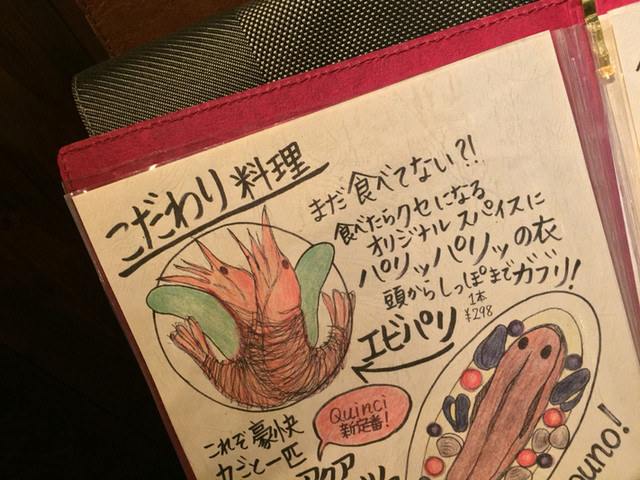 こだわり料理
まだ食べてない?!
食べたらクセになる
オリジナルスパイスに
パリッパリッの衣
頭からしっぽまでガブリ!
1本
¥298
エビパリ
Quinci
新定番!
これぞ豪快
丸ごと一匹
アクア
uno!